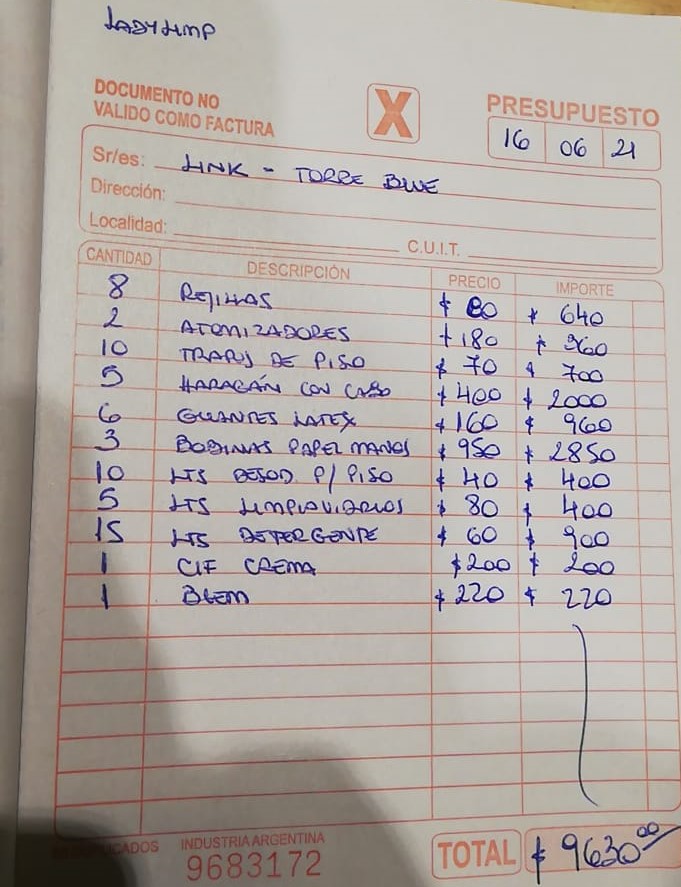 LADYLIMP
DOCUMENTO NO
VALIDO COMO FACTURA
X
PRESUPUESTO
16 06 21
Sr/es: LINK - TORRE BLUE
Dirección:
Localidad:
C.U.I.T.
CANTIDAD DESCRIPCIÓN PRECIO IMPORTE
8 REJILLAS $ 80 $ 640
2 ATOMIZADORES $ 180 $ 360
10 TRAPOS DE PISO $ 70 $ 700
5 HARAGÁN CON CABO $ 400 $ 2000
6 GUANTES LATEX $ 160 $ 960
3 BOBINAS PAPEL MANOS $ 950 $ 2850
10 LTS DESOD P/ PISO $ 40 $ 400
5 LTS LIMPIAVIDRIOS $ 80 $ 400
15 LTS DETERGENTE $ 60 $ 900
1 CIF CREMA $ 200 $ 200
1 BLEM $ 220 $ 220
INDUSTRIA ARGENTINA
9683172
TOTAL $ 9630,00